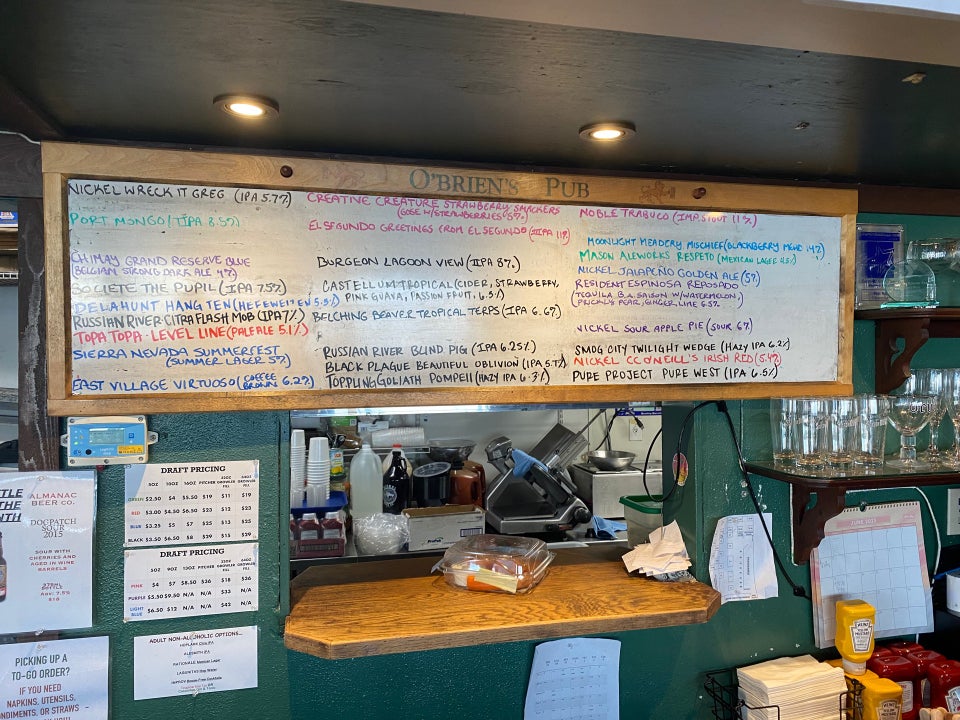 O'BRIEN'S PUB
NICKEL WRECK IT GREG (IPA 5.7%)
PORT MONGO (IIPA 8.5%)
CHIMAY GRAND RESERVE BLUE
(BELGIAN STRONG DARK ALE 9%)
SOCIETE THE PUPIL (IPA 7.5%)
DELAHUNT HANG TEN (HEFEWEIZEN 5.5%)
RUSSIAN RIVER CITRA FLASH MOB (IPA 7%)
TOPA TOPA - LEVEL LINE (PALE ALE 5.1%)
SIERRA NEVADA SUMMERFEST
(SUMMER LAGER 5%)
EAST VILLAGE VIRTUOSO (COFFEE BROWN 6.2%)
CREATIVE CREATURE STRAWBERRY SMACKERS
(GOSE W/STRAWBERRIES 5%)
EL SEGUNDO GREETINGS FROM EL SEGUNDO (IIIPA 11%)
BURGEON LAGOON VIEW (IIPA 8%)
CASTELLUM TROPICAL (CIDER, STRAWBERRY,
PINK GUAVA, PASSION FRUIT, 6.5%)
BELCHING BEAVER TROPICAL TERPS (IPA 6.6%)
RUSSIAN RIVER BLIND PIG (IPA 6.25%)
BLACK PLAGUE BEAUTIFUL OBLIVION (IPA 5.7%)
TOPPLING GOLIATH POMPEII (HAZY IPA 6.3%)
NOBLE TRABUCO (IMP. STOUT 11%)
MOONLIGHT MEADERY MISCHIEF (BLACKBERRY MEAD 14%)
MASON ALEWORKS RESPETO (MEXICAN LAGER 4.5%)
NICKEL JALAPEÑO GOLDEN ALE (5%)
RESIDENT ESPINOSA REPOSADO
(TEQUILA B.A. SAISON W/WATERMELON,
PRICKLY PEAR, GINGER, LIME 6.5%
NICKEL SOUR APPLE PIE (SOUR 6%)
SMOG CITY TWILIGHT WEDGE (HAZY IPA 6.2%)
NICKEL CC O'NEILL'S IRISH RED (5.4%)
PURE PROJECT PURE WEST (IPA 6.5%)
DRAFT PRICING
5OZ 10OZ 16OZ PITCHER 32OZ GROWLER FILL 64OZ GROWLER FILL
GREEN $2.50 $4 $5.50 $19 $11 $19
RED $3.00 $4.50 $6.50 $23 $12 $23
BLUE $3.25 $5 $7 $25 $13 $25
BLACK $3.50 $6.50 $8 $29 $15 $29
DRAFT PRICING
5OZ 9OZ 13OZ PITCHER 32OZ GROWLER FILL 64OZ GROWLER FILL
PINK $4 $7 $8.50 $36 $18 $36
PURPLE $5.50 $9.50 N/A N/A N/A $33
LIGHT BLUE $6.50 $12 N/A N/A $42 N/A
ADULT NON-ALCOHOLIC OPTIONS...
ALMANAC
BEER CO.
DOGPATCH
SOUR
2015
SOUR WITH
CHERRIES AND
AGED IN WINE
BARRELS
375ML
ABV: 7.5%
$16
PICKING UP A
TO-GO ORDER?
IF YOU NEED
NAPKINS, UTENSILS,
CONDIMENTS, OR STRAWS
HEINZ